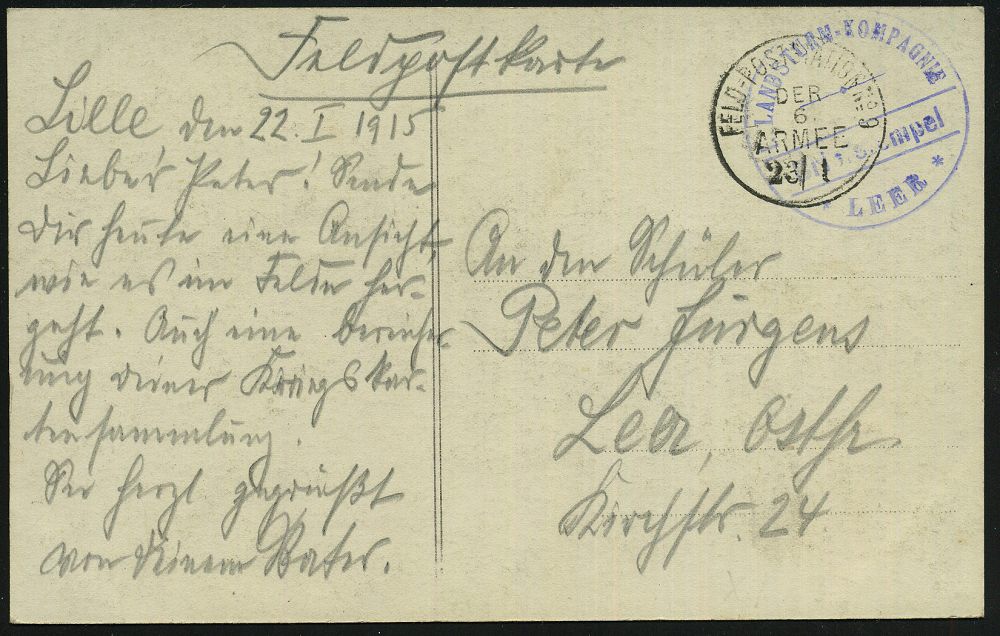 Feldpostkarte
Lille den 22. I 1915
Lieber Peter! Sende
Dir heute eine Ansicht,
wie es im Felde her-
geht. Auch eine bereicher-
ung deiner Kriegskar-
tensammlung.
Sei herzl gegrüßt
von Deinem Vater.
FELD-POSTSTATION No 9
DER
6.
ARMEE
23/1
LANDSTURM-KOMPAGNIE
* LEER *
An den Schüler
Peter Jürgens
Leer, Ostfr
Kirchstr. 24